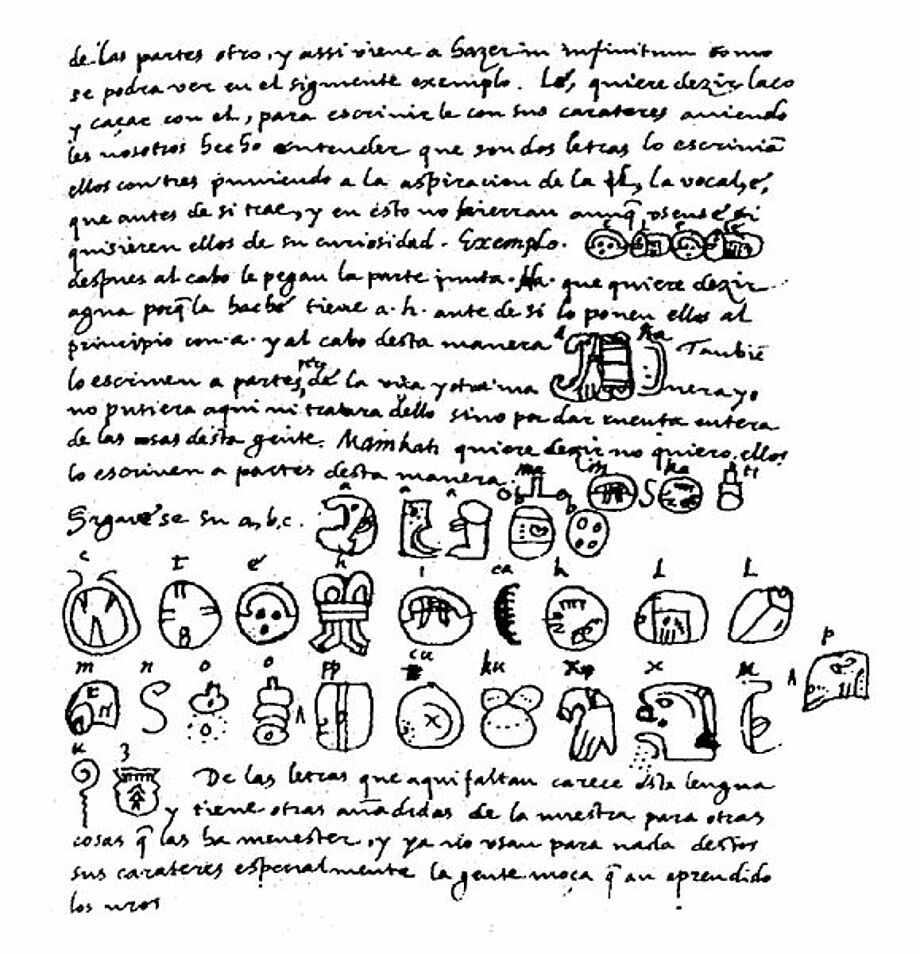 de las partes otro, y assi viene a hazer in infinitum como
se podra ver en el siguiente exemplo. Lé, quiere dezir laço
y caçar con el, para escrivirle con sus carateres aviendo
les nosotros hecho entender que son dos letras lo escrivian
ellos con tres puniendo a la aspiracion de la l, la vocal, é,
que antes de si trae, y en esto no hierran aunq̃, usense si
quisieren ellos de su curiosidad. Exemplo. é l é lé
despues al cabo le pegan la parte junta. Ha. que quiere dezir
agua porq̃ la haché tiene a. h. ante de si lo ponen ellos al
principio con .a. y al cabo desta manera a ha Tambiē
lo escriven a partes, pero de la una y otra ma nera yo
no pusiera aqui ni tratara dello sino por dar cuenta entera
de las cosas desta gente. Mainkati quiere dezir no quiero, ellos
lo escriven a partes desta manera. ma i n ka ti
Siguese su a, b, c. a a a b b
c t é h i ca k l l
m n o o pp cu ku x x u p
u z De las letras que aqui faltan carece esta lengua
y tiene otras añadidas de la nuestra para otras
cosas q̃ las ha menester, y ya no usan para nada destos
sus carateres especialmente la gente moça q̃ an aprendido
los nros